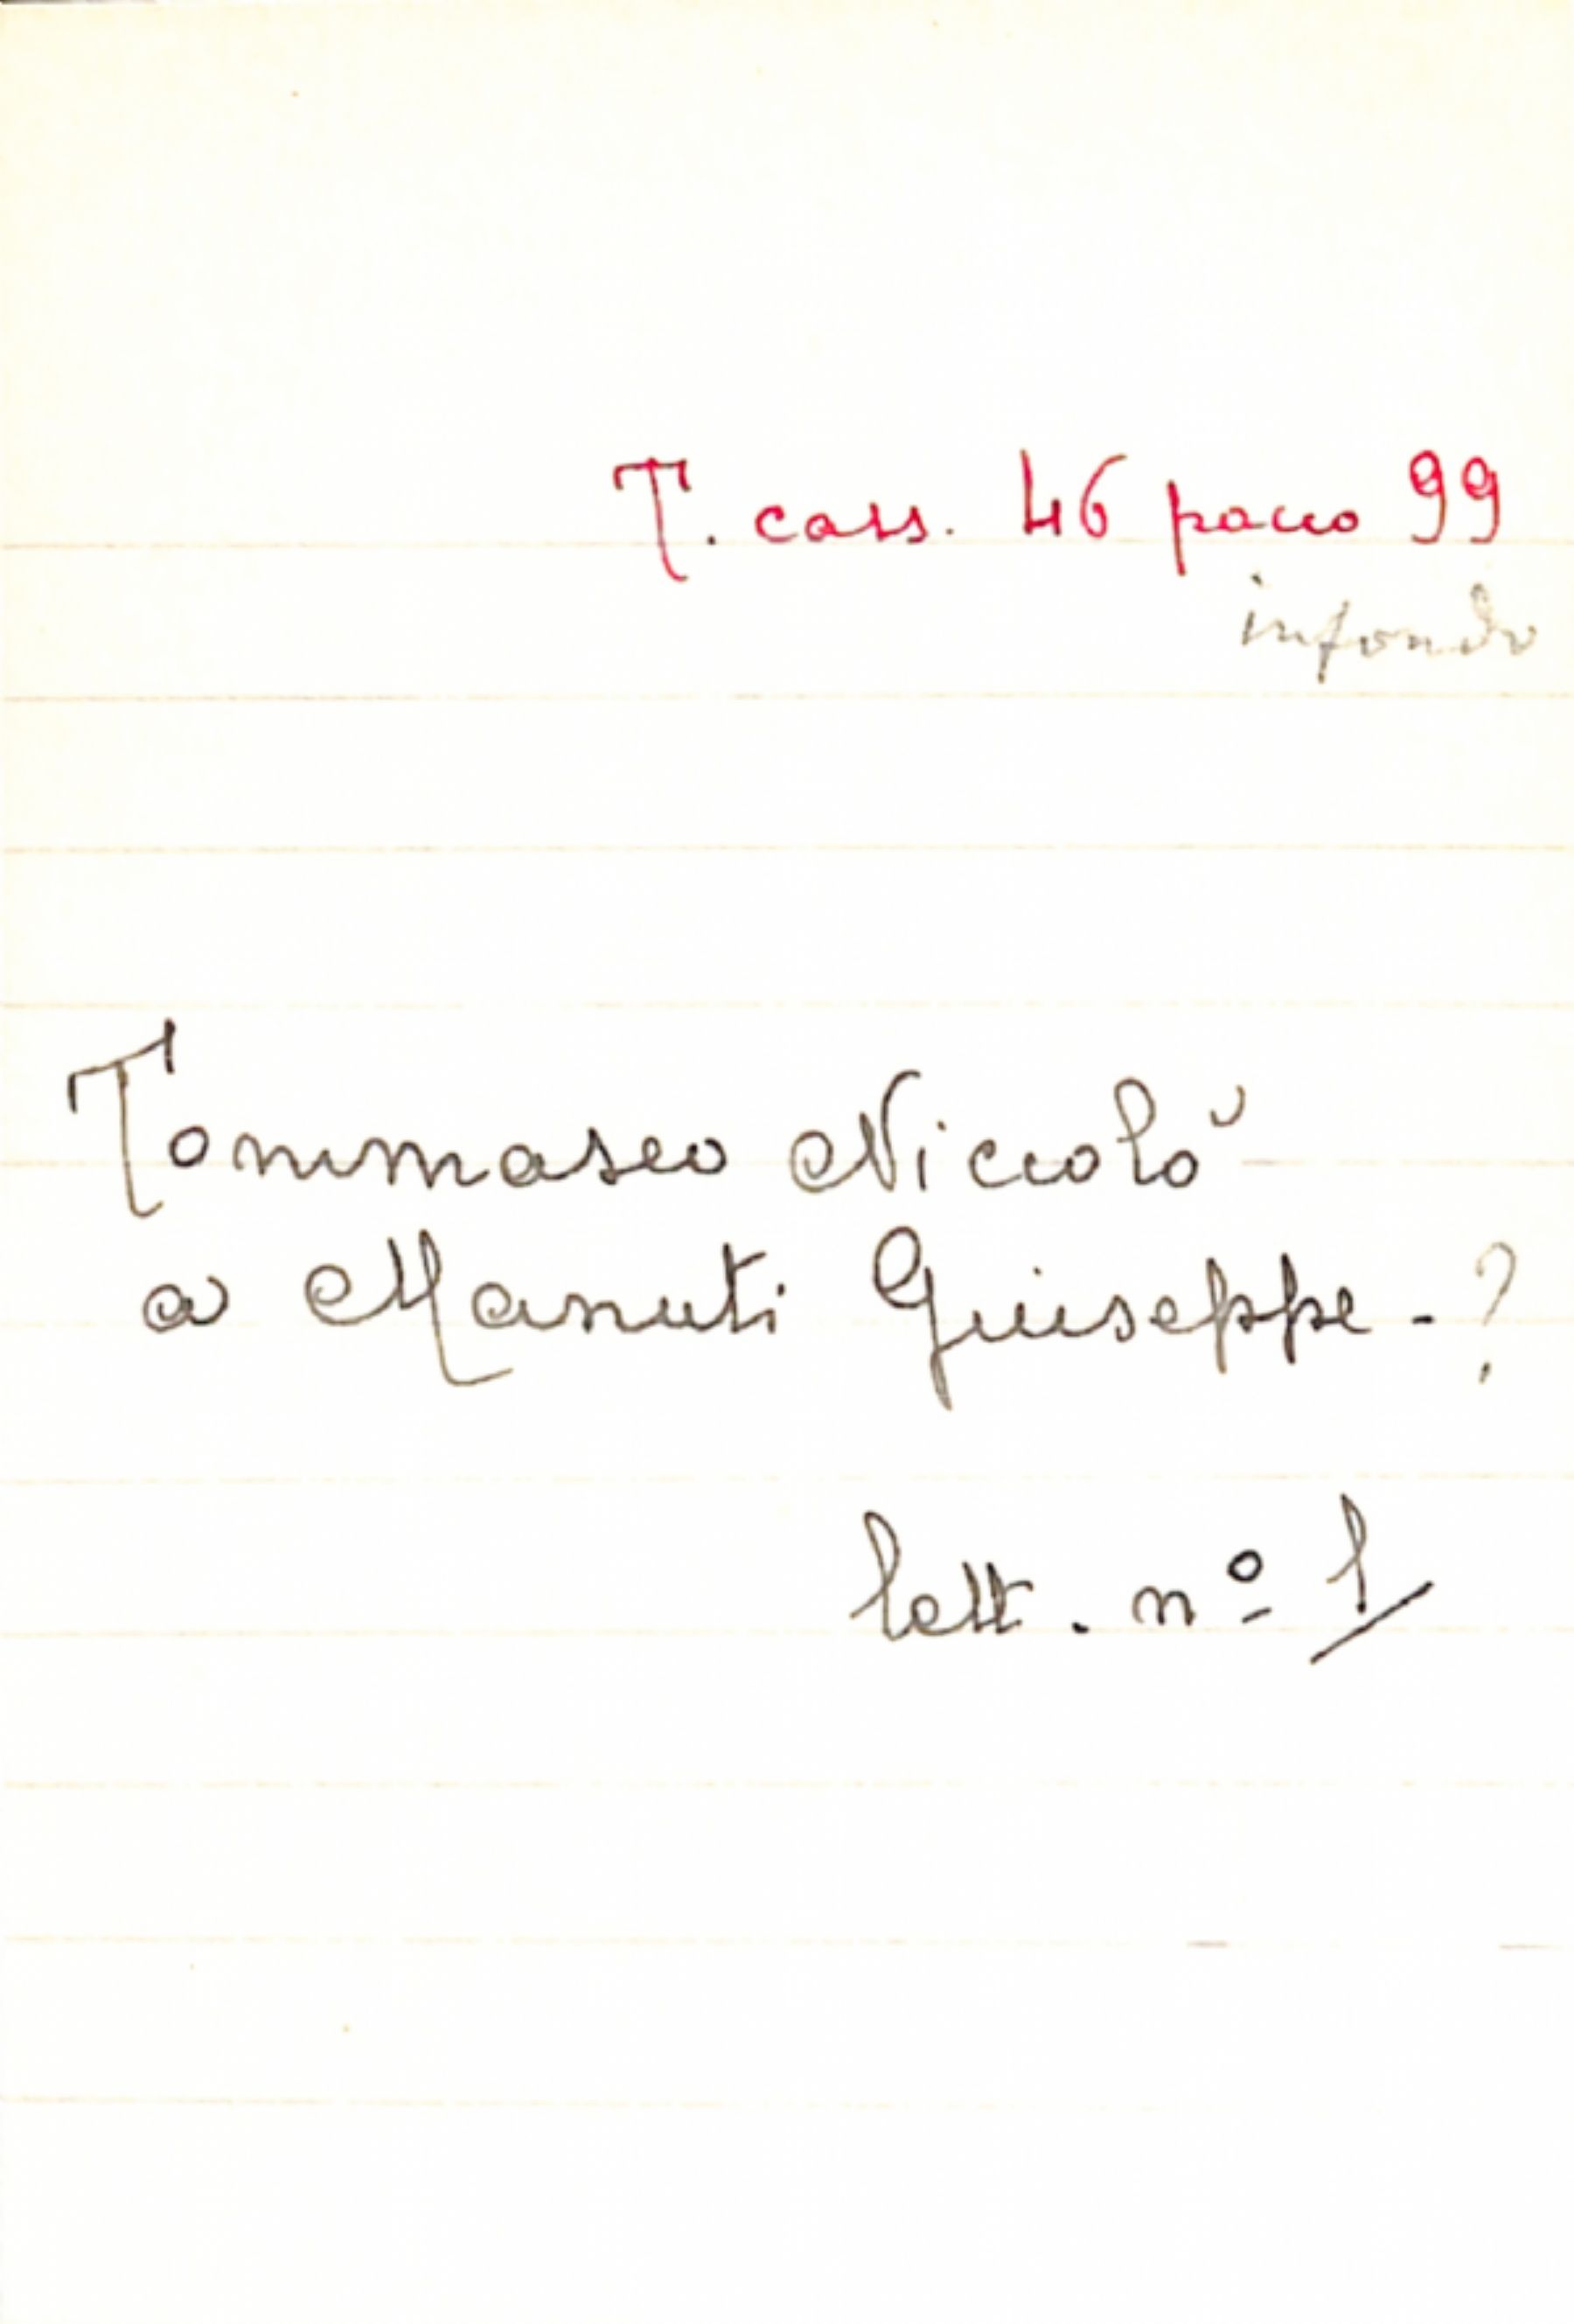 T. cass. 46 pacco 99
in fondo
Tommaseo Niccolò
a Manuti Giuseppe - ?
lett. nº 1